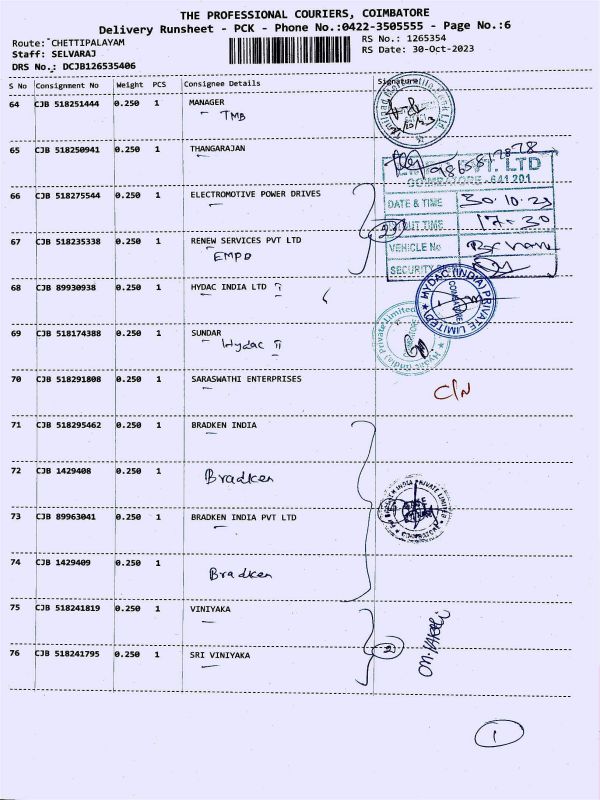 THE PROFESSIONAL COURIERS, COIMBATORE
Delivery Runsheet - PCK - Phone No.:0422-3505555 - Page No.:6
Route: CHETTIPALAYAM
Staff: SELVARAJ
DRS No.: DCJB126535406
RS No.: 1265354
RS Date: 30-Oct-2023
S No Consignment No Weight PCS Consignee Details Signature
64 CJB 518251444 0.250 1 MANAGER
TMB
65 CJB 518250941 0.250 1 THANGARAJAN
PVT. LTD
COIMBATORE - 641 201
66 CJB 518275544 0.250 1 ELECTROMOTIVE POWER DRIVES
DATE & TIME 30.10.23
OUT TIME 17-30
67 CJB 518235338 0.250 1 RENEW SERVICES PVT LTD
EMPD
2
VEHICLE No
SECURITY
68 CJB 89930938 0.250 1 HYDAC INDIA LTD I
HYDAC (INDIA) PRIVATE LIMITED
COIMBATORE
69 CJB 518174388 0.250 1 SUNDAR
Hydac II
Hydac (India) Private Limited
70 CJB 518291808 0.250 1 SARASWATHI ENTERPRISES
C/N
71 CJB 518295462 0.250 1 BRADKEN INDIA
72 CJB 1429408 0.250 1
Bradken
73 CJB 89963041 0.250 1 BRADKEN INDIA PVT LTD
INDIA PRIVATE LIMITED
COIMBATORE
74 CJB 1429409 0.250 1
Bradken
75 CJB 518241819 0.250 1 VINIYAKA
76 CJB 518241795 0.250 1 SRI VINIYAKA
2
1